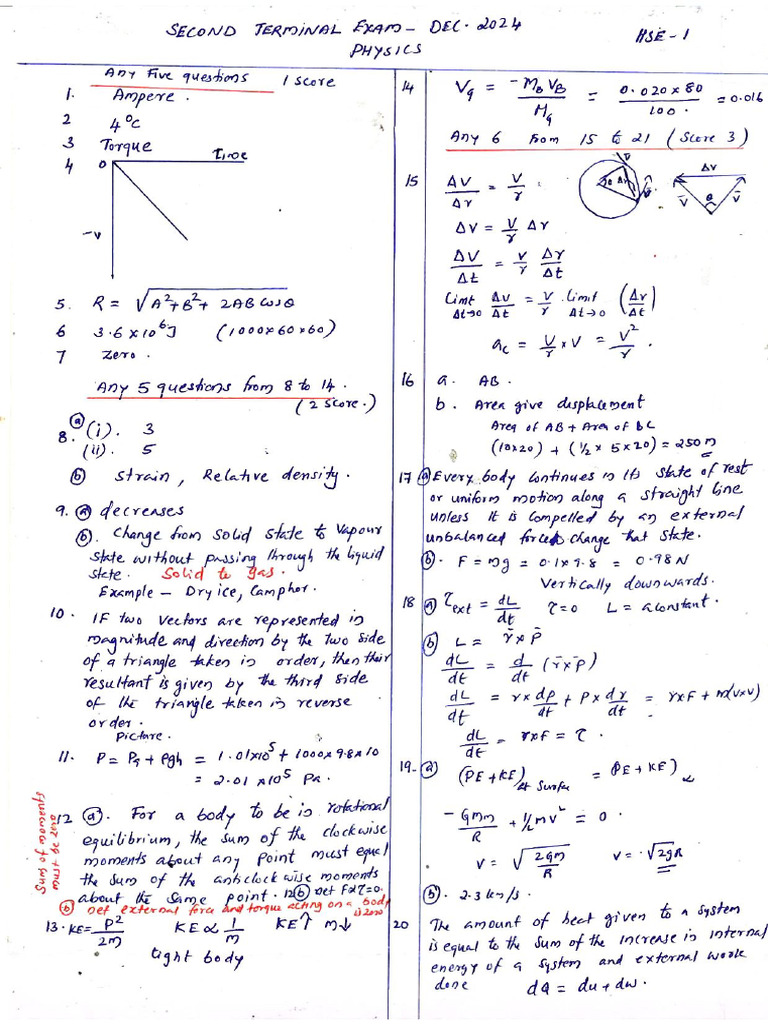 SECOND TERMINAL EXAM - DEC. 2024
HSE - 1
PHYSICS
Any Five questions 1 score
1. Ampere.
2 4°C
3 Torque
4 0 Time
-v
5. R = √A²+B²+2AB cosθ
6 3.6 x 10⁶J (1000x60x60)
7 zero.
Any 5 questions from 8 to 14.
(2 score.)
8. ⓐ (i). 3
(ii). 5
ⓑ strain, Relative density.
9. ⓐ decreases
ⓑ. Change from solid state to vapour
state without passing through the liquid
state. Solid to gas.
Example - Dry ice, Camphor.
10. IF two vectors are represented in
magnitude and direction by the two side
of a triangle taken in order, then their
resultant is given by the third side
of the triangle taken in reverse
order.
Picture.
11. P = Pa + ρgh = 1.01x10⁵ + 1000x9.8x10
= 2.01 x10⁵ Pa.
12 ⓐ. For a body to be in rotational
equilibrium, the sum of the clockwise
moments about any point must equal
the sum of the anticlockwise moments
about the same point. 12ⓑ net F&τ=0.
Sum of moments
must be zero
ⓑ net external force and torque acting on a body
is zero
13. KE = P²/2m KE ∝ 1/m KE↑ m↓
light body
14 Vg = -MB VB / Mg = 0.020x80 / 100. = 0.016
Any 6 from 15 to 21 (Score 3)
15 Δv/Δr = v/r
Δv = v/r Δr
Δv/Δt = v/r Δr/Δt
Limt Δt→0 Δv/Δt = v/r . Limit Δt→0 (Δr/Δt)
ac = v/r x v = v²/r.
θ Δr
Δr
v̄ θ v̄
16 a. AB.
b. Area give displacement
Area of AB + Area of BC
(10x20) + (½ x 5 x20) = 250 m
17 ⓐ Every body continues in its state of rest
or uniform motion along a straight line
unless it is compelled by an external
unbalanced force change that state.
ⓑ. F = mg = 0.1x9.8 = 0.98N
Vertically downwards.
18 ⓐ τext = dL/dt τ=0 L = a constant.
ⓑ L = r̄ x p̄
dL/dt = d/dt (r̄ x p̄)
dL/dt = r x dp/dt + p x dr/dt = r x F + m(v x v)
dL/dt = r x F = τ.
19- ⓐ (PE+KE) at surface = (PE+KE) ∞
-GMm/R + ½ mv² = 0.
v = √2GM/R v = √2gR
ⓑ. 2.3 km/s.
20 The amount of heat given to a system
is equal to the sum of the increase in internal
energy of a system and external work
done dQ = du + dw.